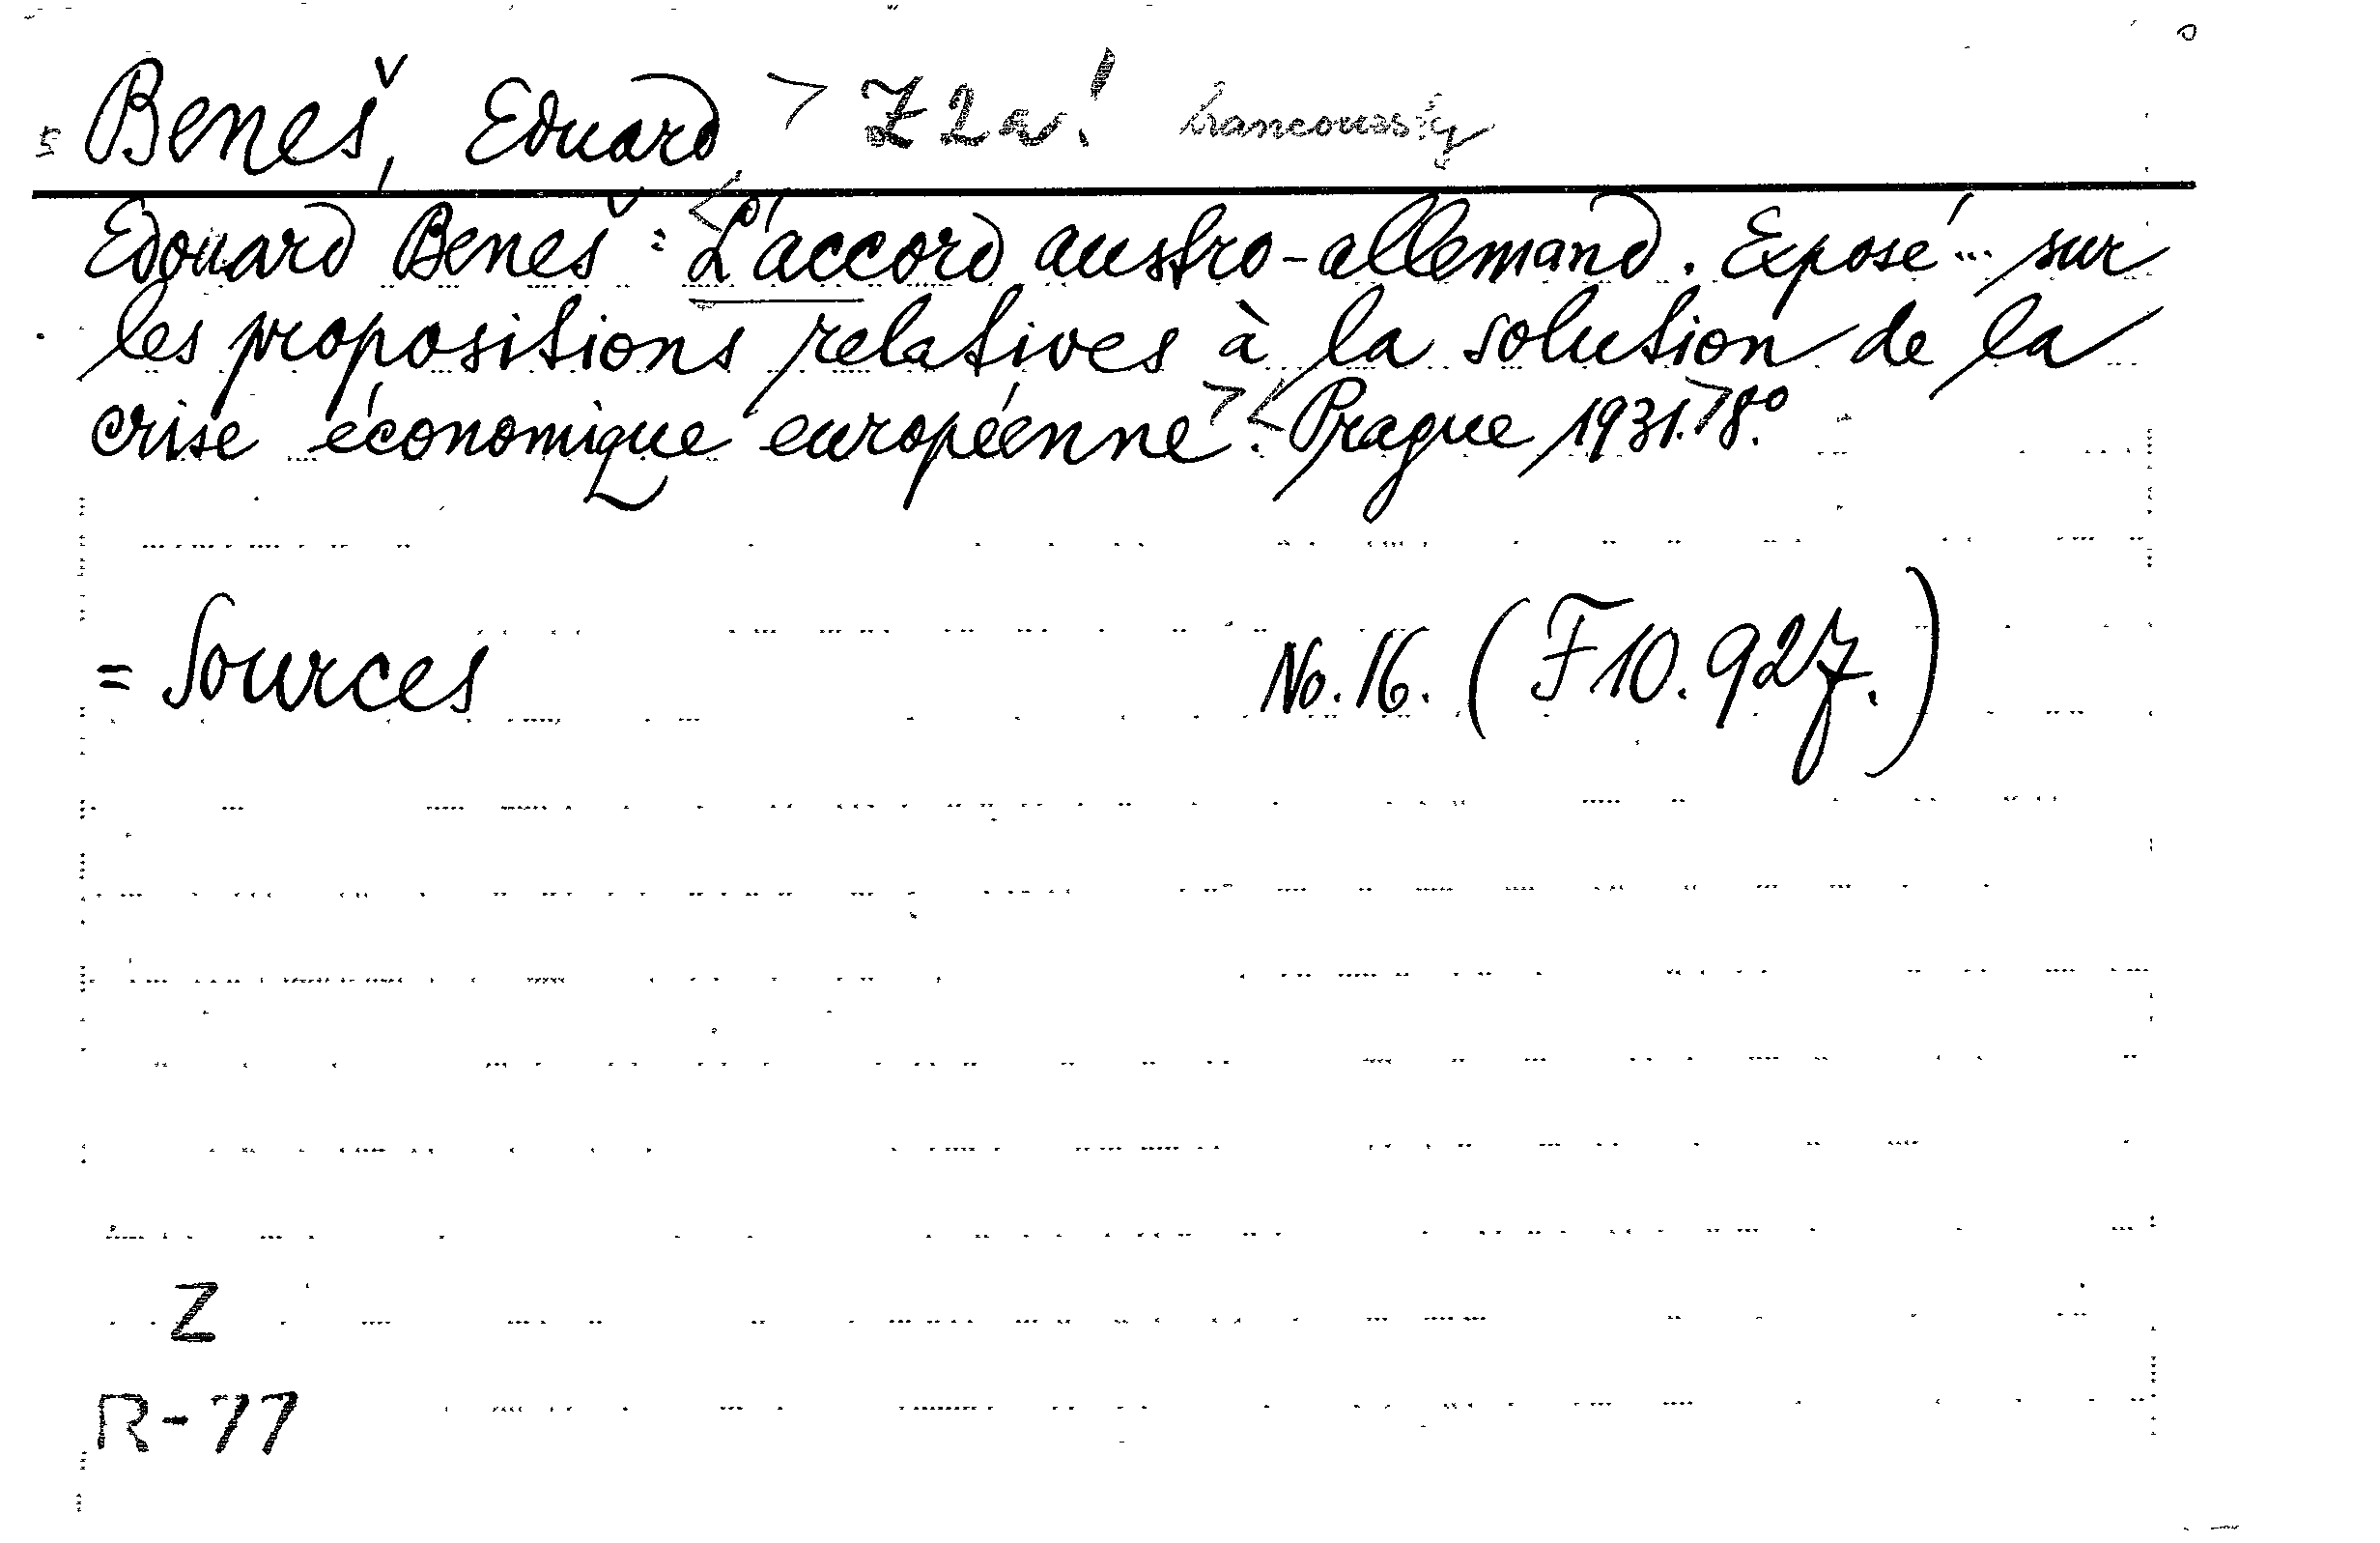 Beneš, Eduard > Z 2a! francouzsky
Edouard Beneš : <L'accord austro-allemand. Exposé... sur
les propositions relatives à la solution de la
crise économique européenne>. <Prague 1931.> 8.°
= Sources No. 16. (F 10.927.)
Z
R-77